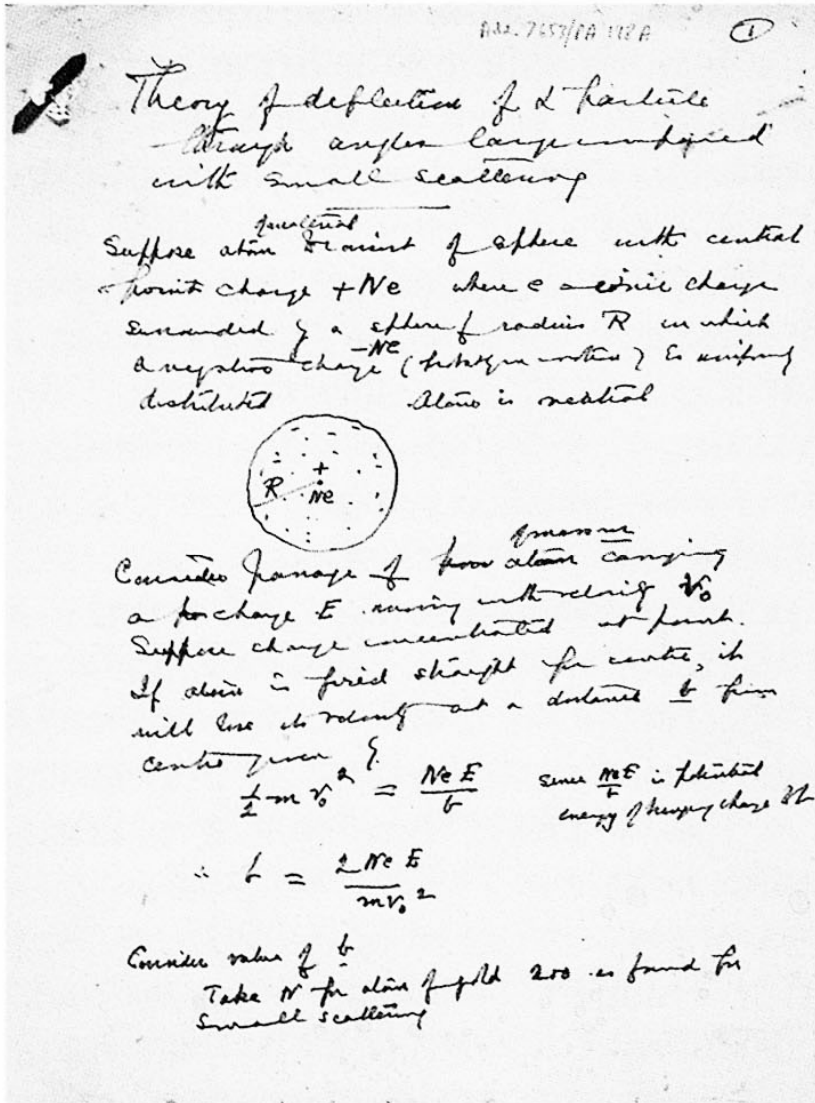 Add. 7653/PA 118 A
①
Theory of deflection of α particle
through angles large compared
with small scattering
of material
Suppose atom consist of sphere with central
point charge + Ne where e = ionic charge
surrounded by a sphere of radius R in which
a negative charge -Ne ( ) is uniformly
distributed Atom is neutral
+
R
Ne
Consider passage of atom carrying
a pos charge E moving with velocity v₀
Suppose charge concentrated at point.
If atom is fired straight for centre, it
will lose its velocity at a distance b from
centre given by
½ m v₀² = Ne E / b since Ne E / b is potential
energy of charge
∴ b = 2 Ne E / m v₀²
Consider value of b
Take N for atom of gold 200 as found for
small scattering